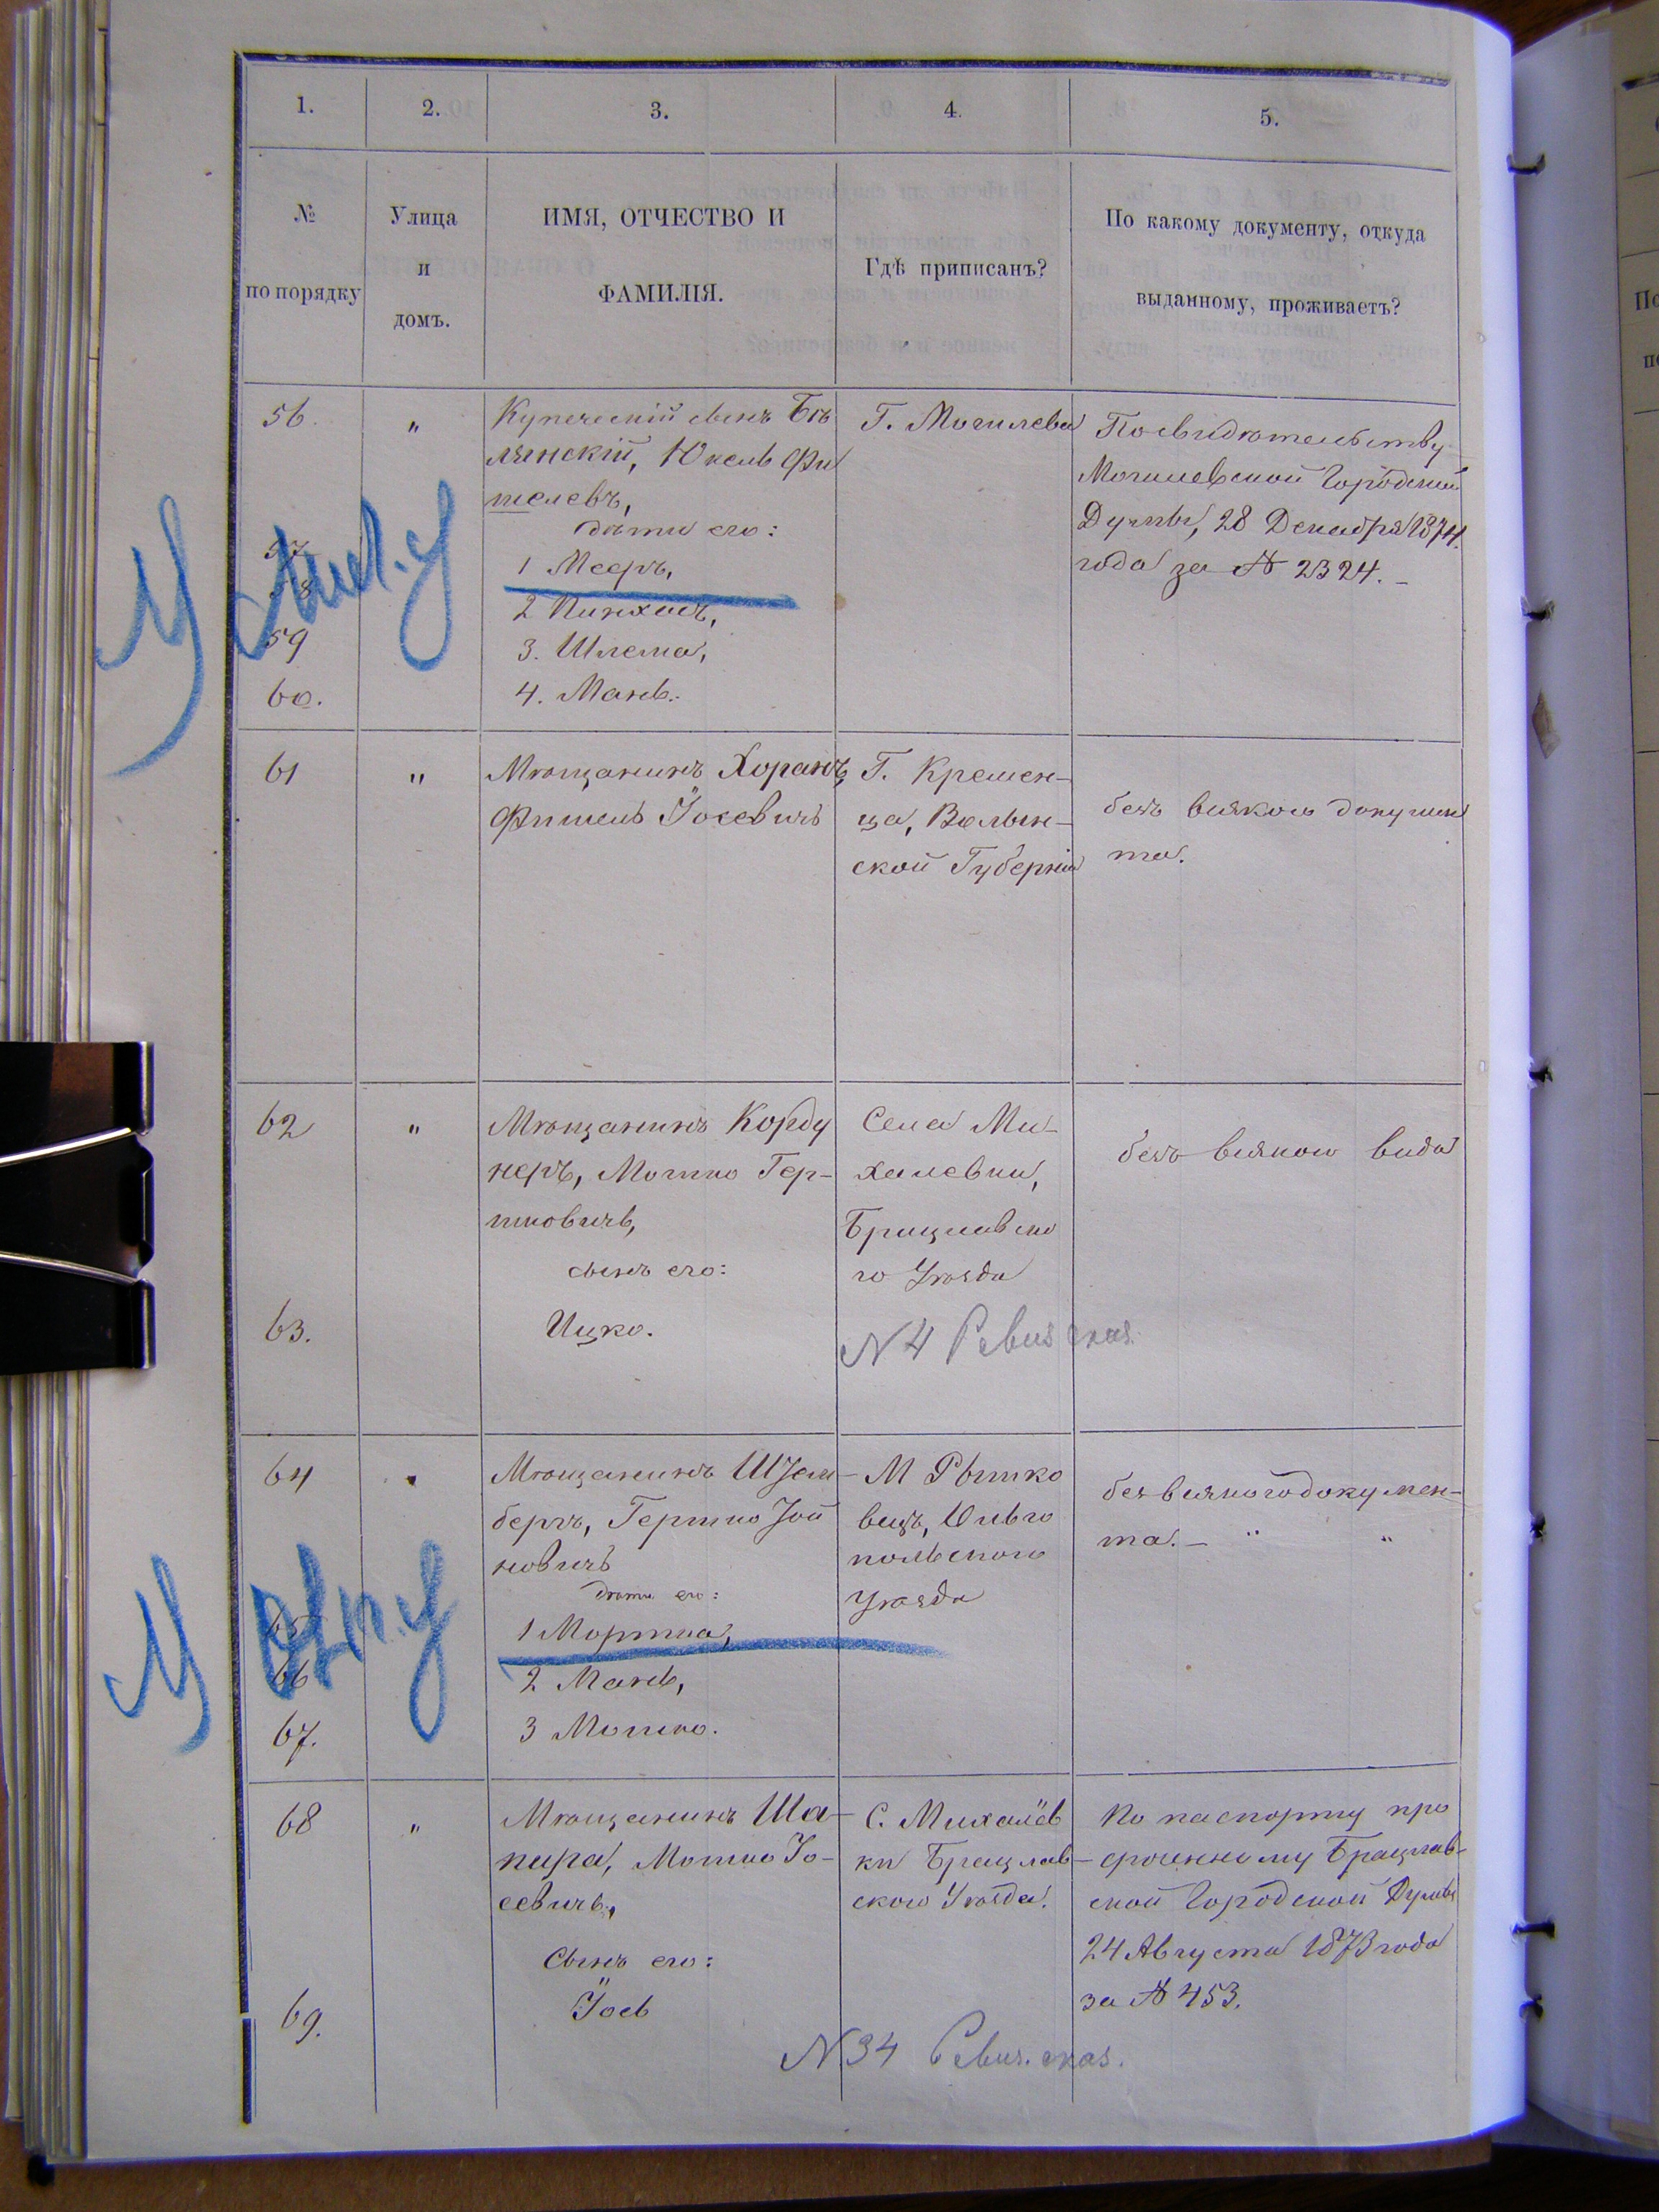 1. 2. 3. 4. 5.
№ по порядку
Улица и домъ.
ИМЯ, ОТЧЕСТВО И ФАМИЛІЯ.
Гдѣ приписанъ?
По какому документу, откуда
выданному, проживаетъ?
56. " Купеческій сынъ Бѣ
лянскій, Юкель Фи
шелевъ,
дѣти его:
57
1 Мееръ,
58
2 Пинхасъ,
59
3. Шлема,
60.
4. Мань.
Г. Могилева
По свидѣтельству
Могилевской Городской
Думы, 28 Декабря 1874
года за № 2324.
61 " Мѣщанинъ Хоранъ,
Фишель Іосевичъ
Г. Кремен-
ца, Волын-
ской Губерніи
безъ всякого докумен
та.
62 " Мѣщанинъ Корду
неръ, Мошко Гер-
шковичъ,
сынъ его:
63.
Ицко.
Села Ми-
халевки,
Брацлавско
го Уѣзда
N 4 Ревиз сказ.
безъ всякого вида
64 " Мѣщанинъ
бергъ, Гершко Іой
новичъ
дѣти его:
65
1 Мортка,
66
2 Мань,
67.
3 Мошко.
М
вецъ, Ольго
польского
Уѣзда
без всякого докумен-
та. — " "
68 " Мѣщанинъ Ша-
пира, Мошко Іо-
севичъ,
Сынъ его:
69.
Іось
С. Михалёв
ки Брацлав-
ского Уѣзда.
N 34 Ревиз. сказ.
По паспорту про
сроченному Брацлав-
ской Городской Думы
24 Августа 1873 года
за № 453.